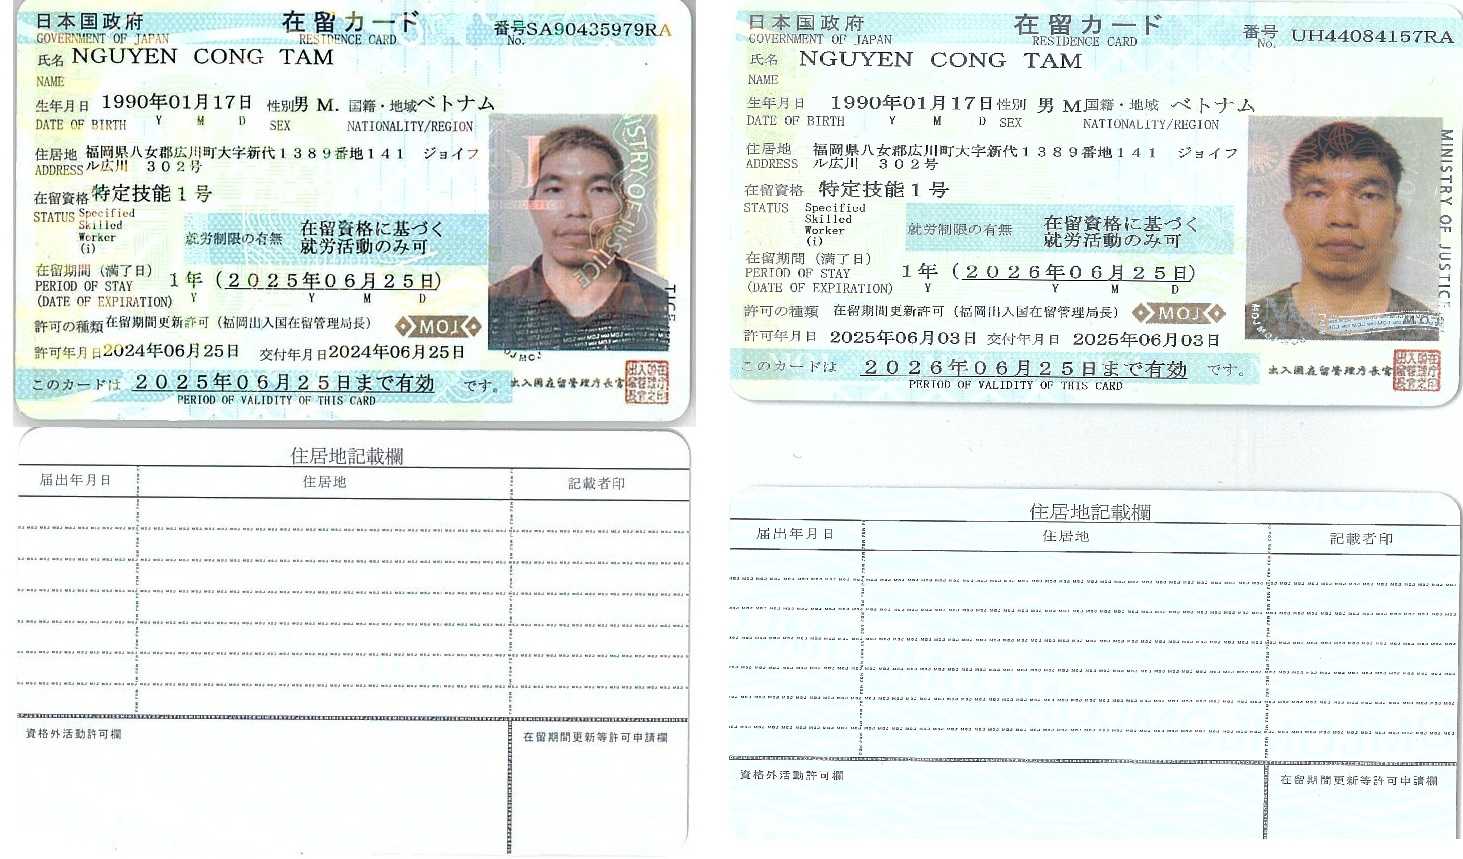 日本国政府 在留カード 番号SA90435979RA
GOVERNMENT OF JAPAN RESIDENCE CARD No.
氏名 NGUYEN CONG TAM
NAME
生年月日 1990年01月17日 性別 男 M. 国籍・地域 ベトナム
DATE OF BIRTH Y M D SEX NATIONALITY/REGION
住居地 福岡県八女郡広川町大字新代1389番地141 ジョイフ
ADDRESS ル広川 302号
在留資格 特定技能1号
STATUS Specified
Skilled
Worker
(i)
就労制限の有無 在留資格に基づく
就労活動のみ可
在留期間(満了日)
PERIOD OF STAY 1年(2025年06月25日)
(DATE OF EXPIRATION) Y Y M D
許可の種類 在留期間更新許可(福岡出入国在留管理局長) MOJ
許可年月日 2024年06月25日 交付年月日 2024年06月25日
このカードは 2025年06月25日まで有効 です。 出入国在留管理庁長官
PERIOD OF VALIDITY OF THIS CARD
MINISTRY OF JUSTICE
住居地記載欄
届出年月日 住居地 記載者印
資格外活動許可欄 在留期間更新等許可申請欄
日本国政府 在留カード 番号 UH44084157RA
GOVERNMENT OF JAPAN RESIDENCE CARD No.
氏名 NGUYEN CONG TAM
NAME
生年月日 1990年01月17日 性別 男 M. 国籍・地域 ベトナム
DATE OF BIRTH Y M D SEX NATIONALITY/REGION
住居地 福岡県八女郡広川町大字新代1389番地141 ジョイフ
ADDRESS ル広川 302号
在留資格 特定技能1号
STATUS Specified
Skilled
Worker
(i)
就労制限の有無 在留資格に基づく
就労活動のみ可
在留期間(満了日)
PERIOD OF STAY 1年(2026年06月25日)
(DATE OF EXPIRATION) Y Y M D
許可の種類 在留期間更新許可(福岡出入国在留管理局長) MOJ
許可年月日 2025年06月03日 交付年月日 2025年06月03日
このカードは 2026年06月25日まで有効 です。 出入国在留管理庁長官
PERIOD OF VALIDITY OF THIS CARD
MINISTRY OF JUSTICE
住居地記載欄
届出年月日 住居地 記載者印
資格外活動許可欄 在留期間更新等許可申請欄